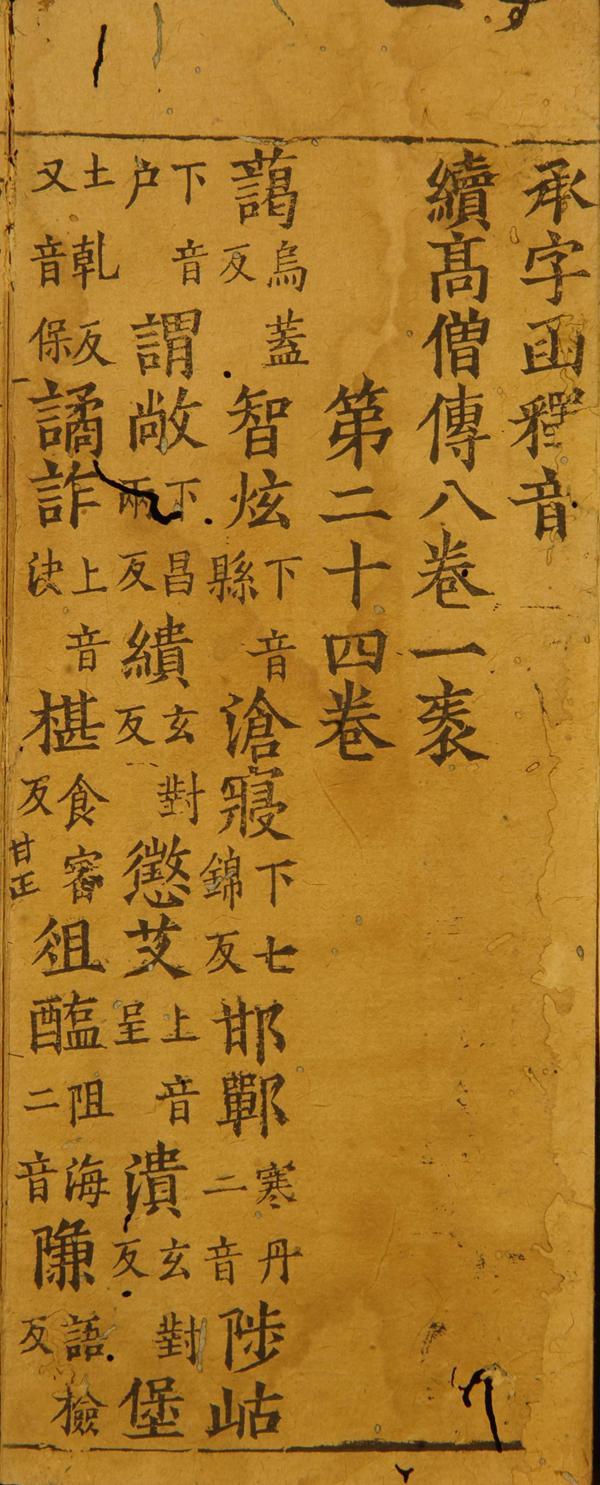 承字函釋音
續髙僧傳八卷一袠
第二十四卷
藹烏蓋反智炫下音縣滄寢下七錦反邯鄲寒丹二音陟岵
下音户謂敞下昌兩反繢玄對反懲艾上音呈潰玄對反堡
土乹反又音保譎詐上音決椹食審反甘正徂醢阻海二音隒語檢反